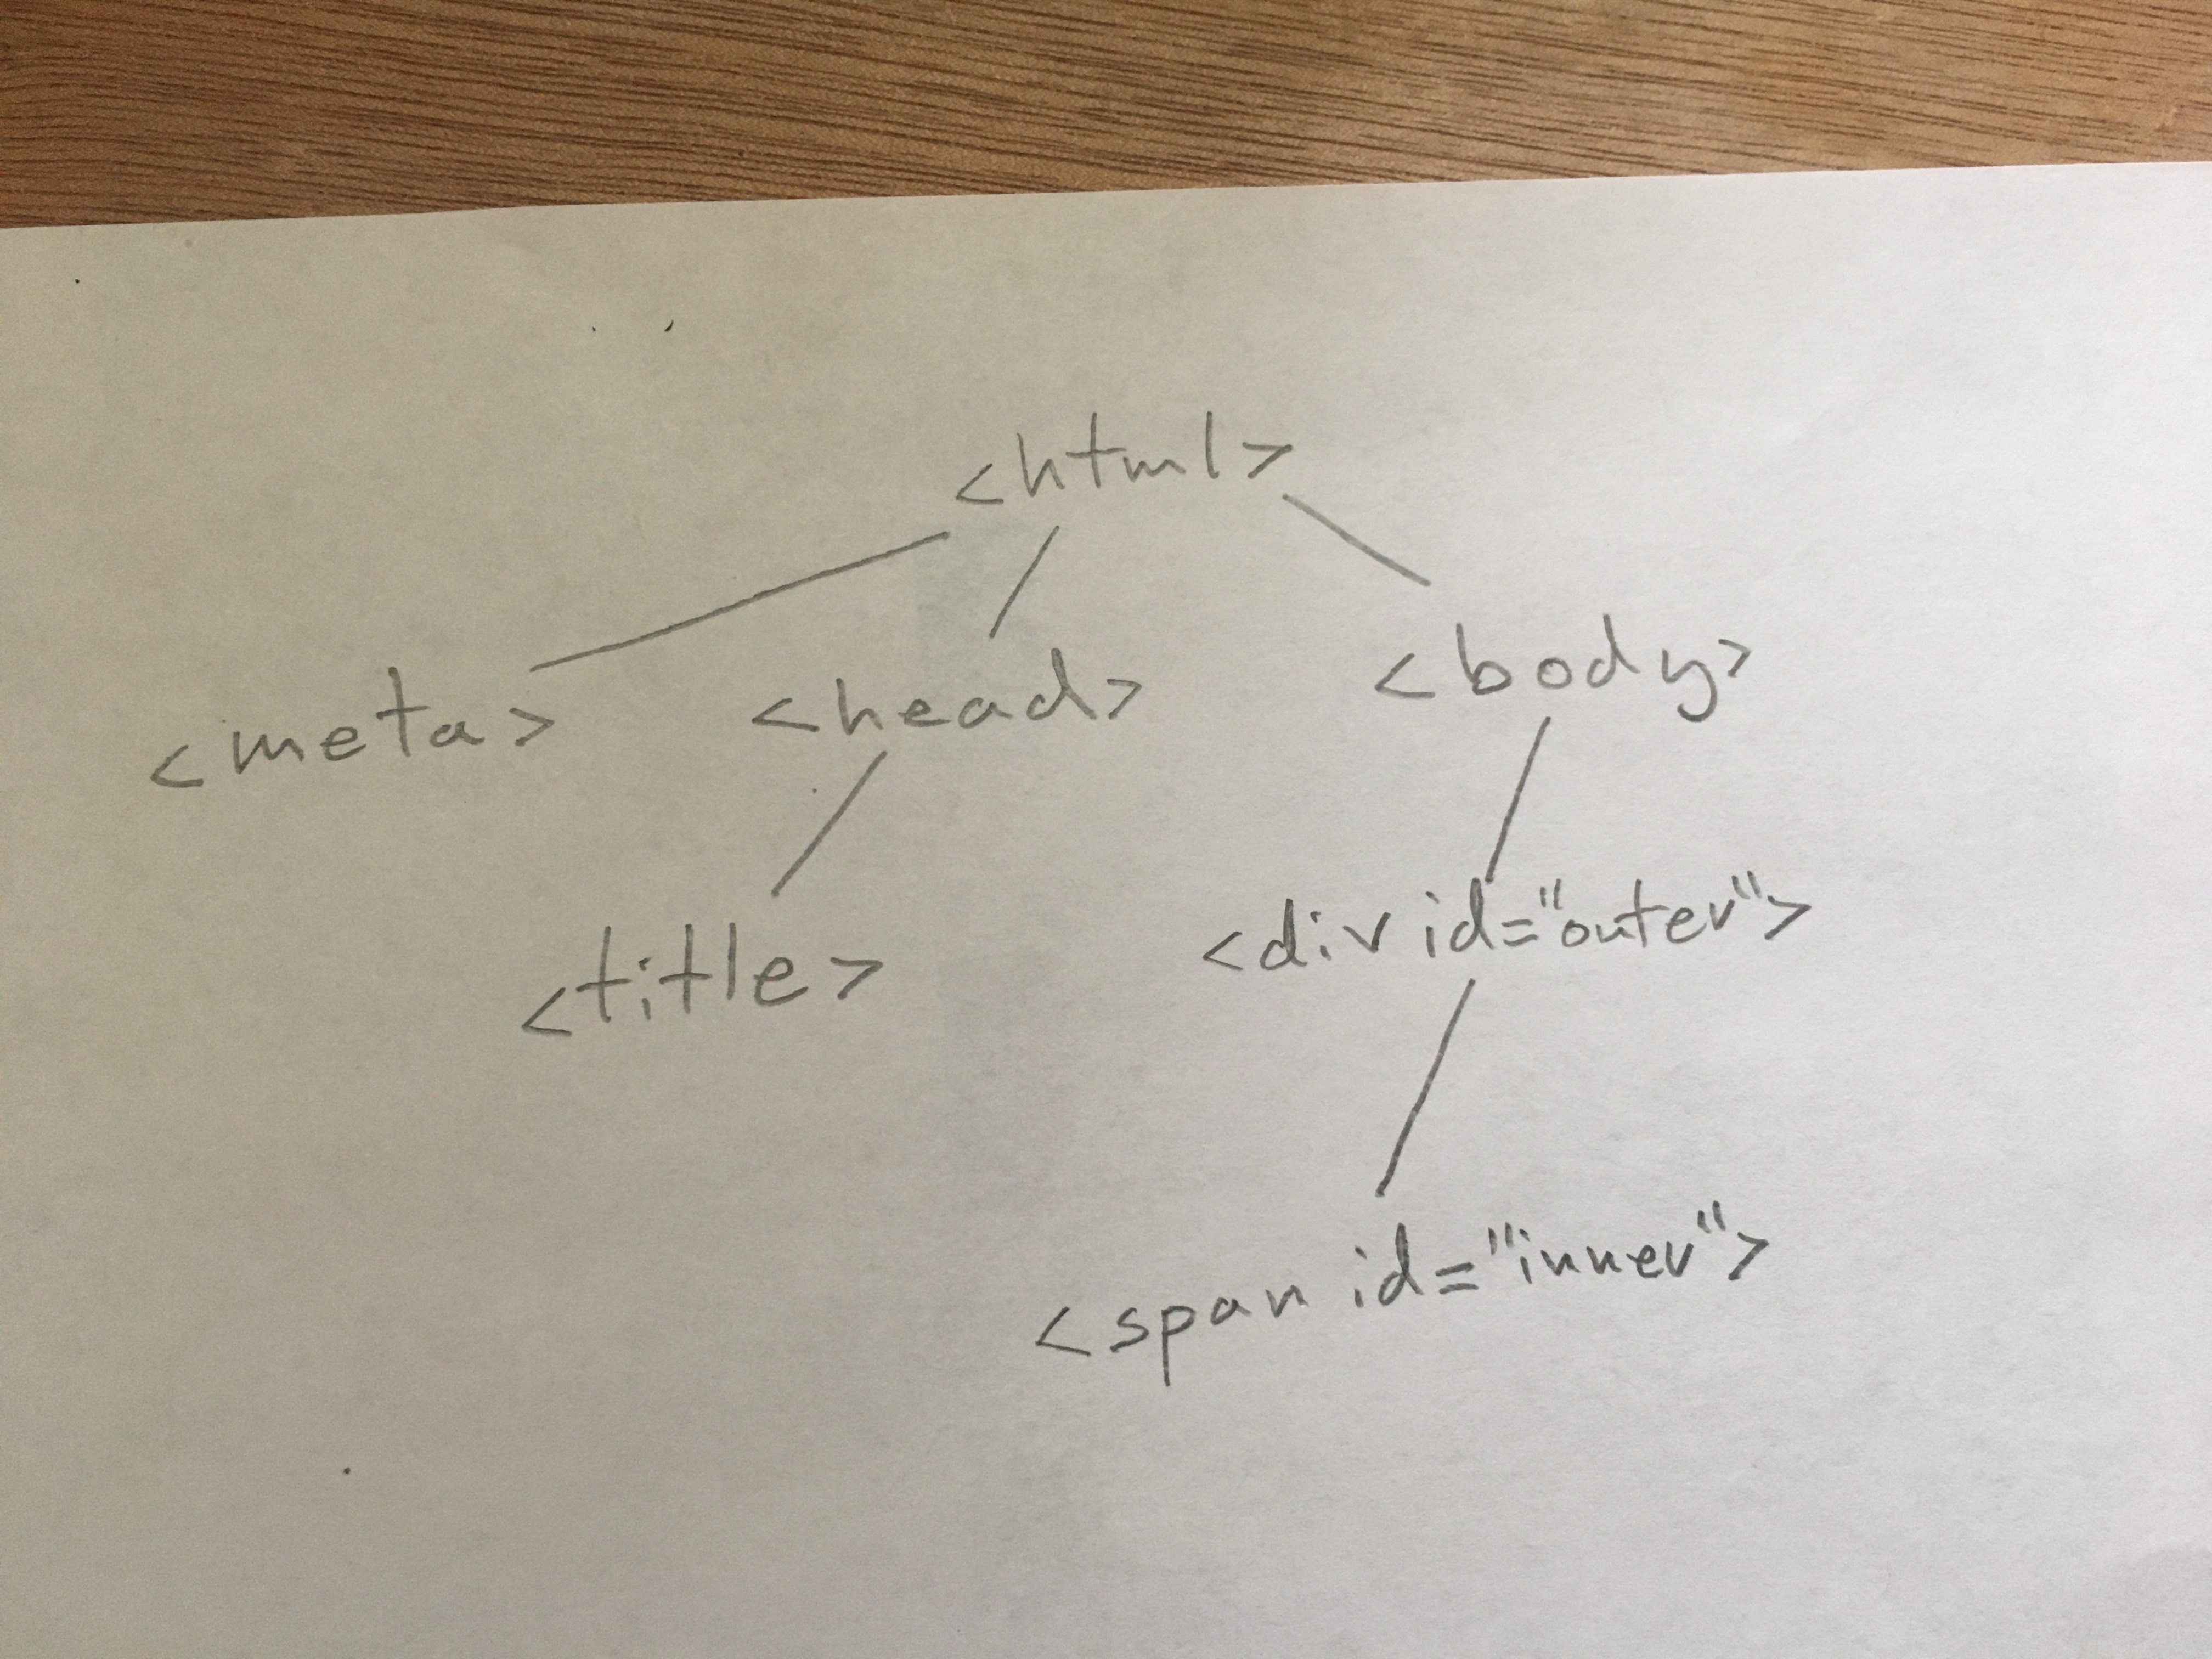 <html>
<meta> <head> <body>
<title> <div id="outer">
<span id="inner">